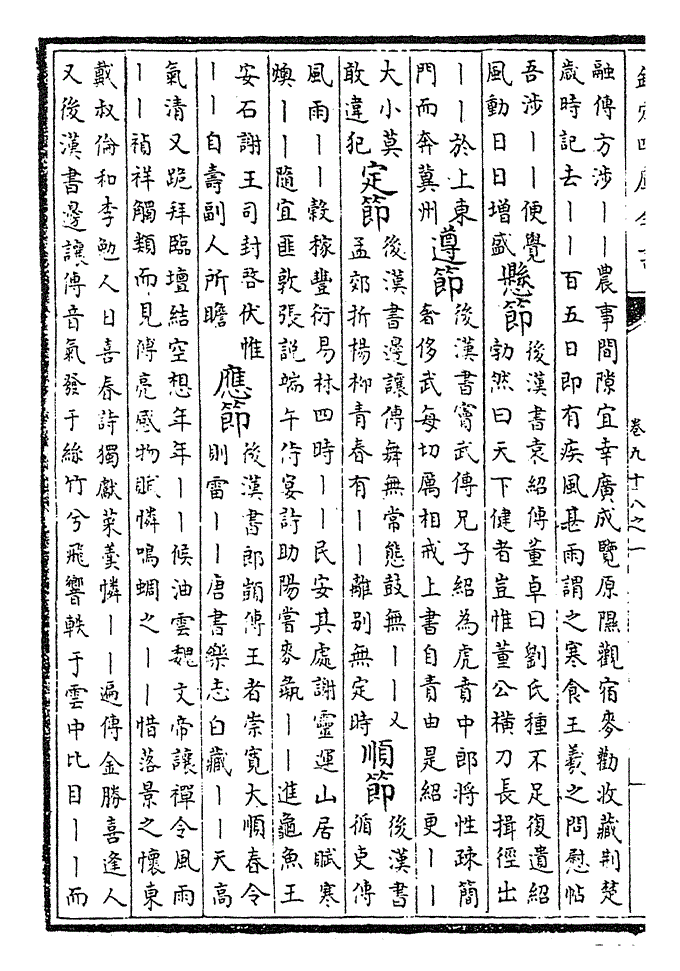 欽定四庫全書
卷九十八之一
融傳方涉——農事間隙宜幸廣成覽原隰觀宿麥勸收藏荆楚
歲時記去——百五日即有疾風甚雨謂之寒食王羲之問慰帖
吾涉——便覺
風動日日增盛
懸節
後漢書袁紹傳董卓曰劉氏種不足復遺紹
勃然曰天下健者豈惟董公横刀長揖徑出
——於上東
門而奔冀州
遵節
後漢書竇武傳兄子紹為虎賁中郎將性疎簡
奢侈武每切厲相戒上書自責由是紹更——
大小莫
敢違犯
定節
後漢書邊讓傳舞無常態鼓無——又
孟郊折楊柳青春有——離别無定時
順節
後漢書
循吏傳
風雨——穀稼豐衍易林四時——民安其處謝靈運山居賦寒
燠——隨宜匪敦張説端午侍宴詩助陽嘗麥彘——進龜魚王
安石謝王司封啓伏惟
——自壽副人所瞻
應節
後漢書郎顗傳王者崇寛大順春令
則雷——唐書樂志白藏——天高
氣清又跪拜臨壇結空想年年——候油雲魏文帝讓禪令風雨
——禎祥觸類而見傅亮感物賦憐鳴蜩之——惜落景之懷東
戴叔倫和李勉人日喜春詩獨獻菜羹憐——遍傳金勝喜逢人
又後漢書邊讓傳音氣發于絲竹兮飛響軼于雲中比目——而